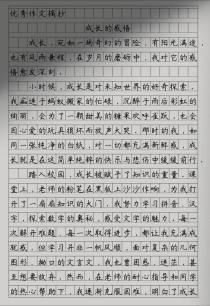 优秀作文摘抄
成长的感悟
成长，宛如一场奇幻的冒险，有阳光满途，
也有风雨兼程，在岁月的磨砺中，我对它的感
悟愈发深刻。
小时候，成长是对未知世界的好奇探索。
我痴迷于蚂蚁搬家的忙碌，沉醉于雨后彩虹的
绚丽，会为了一颗甜甜的糖果欢呼雀跃，也会
因心爱的玩具损坏而放声大哭。那时的我，如
同一张纯净的白纸，对一切都充满新鲜感，成
长就是在这简单纯粹的快乐与悲伤中缓缓前行。
踏入校园，成长被赋予了知识的重量。课
堂上，老师的粉笔在黑板上沙沙作响，为我打
开了一扇扇知识的大门。我努力学习拼音、汉
字，探索数学的奥秘，感受文学的魅力。每一
次解开难题，每一次取得进步，都让我充满成
就感。但学习并非一帆风顺，面对复杂的几何
图形、拗口的文言文，我也曾困惑、迷茫，甚
至想要放弃。然而，在老师的耐心指导和同学
的热心帮助下，我逐渐克服困难，明白了成长